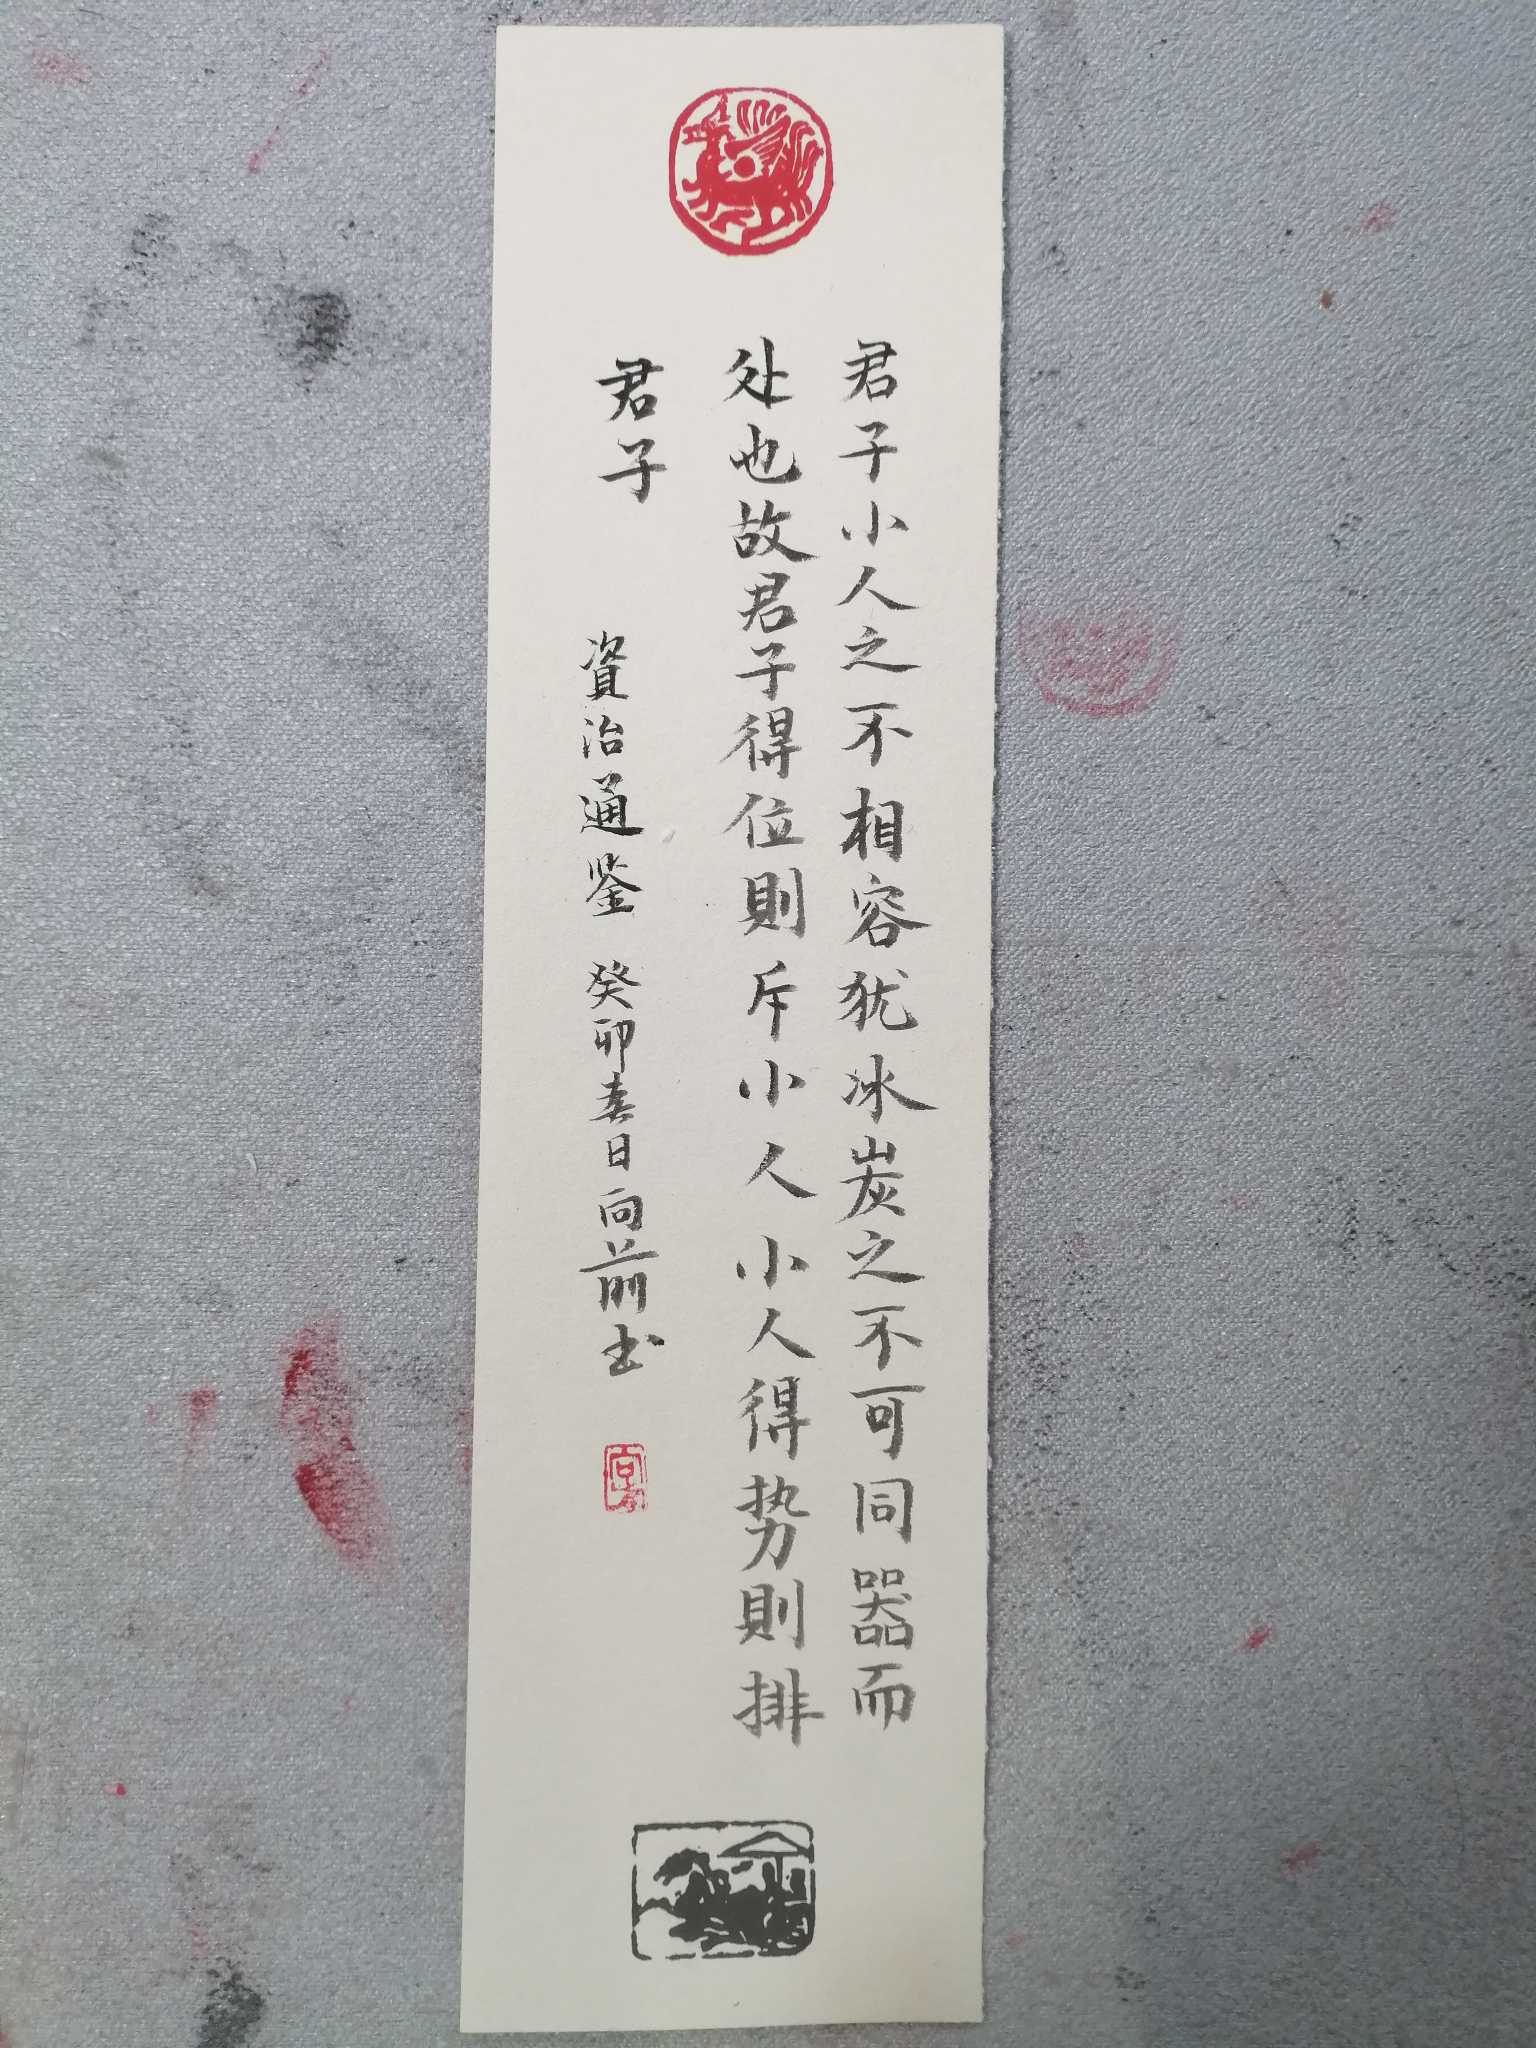 君子小人之不相容犹冰炭之不可同器而
处也故君子得位則斥小人小人得势則排
君子
資治通鉴 癸卯春日向前书